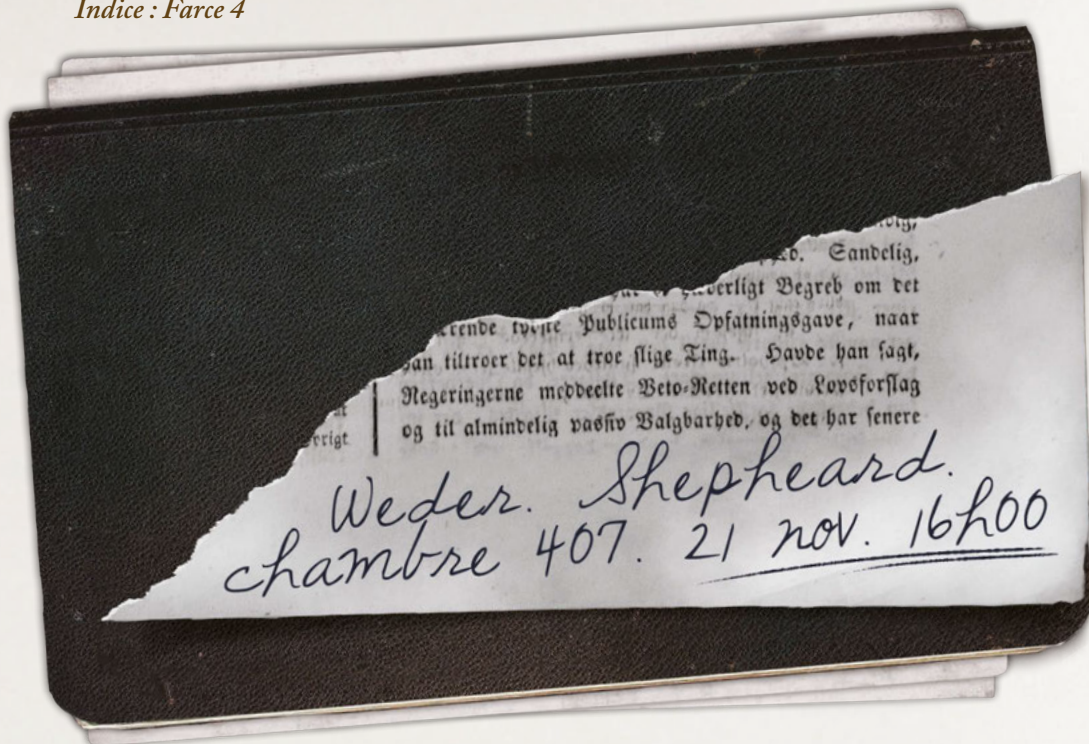 Indice : Farce 4
Sandelig,
Begreb om det
Publicums Opfatningsgave, naar
han tiltroer det at troe slige Ting. Havde han sagt,
Regeringerne meddeelte Veto-Retten ved Lovsforslag
og til almindelig passiv Valgbarhed, og det har senere
Weder. Shepheard.
chambre 407. 21 nov. 16h00